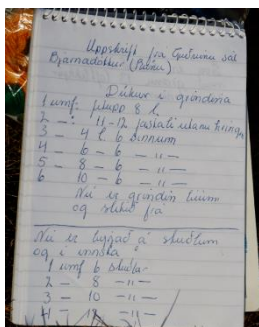 Uppskrift frá Guðrúnu sál
Bjarnadóttur (Rúnu)
Dúkur í grindina
1 umf: plupp. 8 l.
2 — : 11-12 fastali utanu hringa
3 — 4 l. 6 sinnum
4 — 6 - 6 — 11 —
5 — 8 - 6 — 11 —
6 10 - 6 — 11 —
Nú er grindin búin
og slitið frá
Nú er byrjað á stuðlum
og í innsta
1 umf 6 stuðla
2 — 8 —11—
3 — 10 —11—
4 — 12 —11—